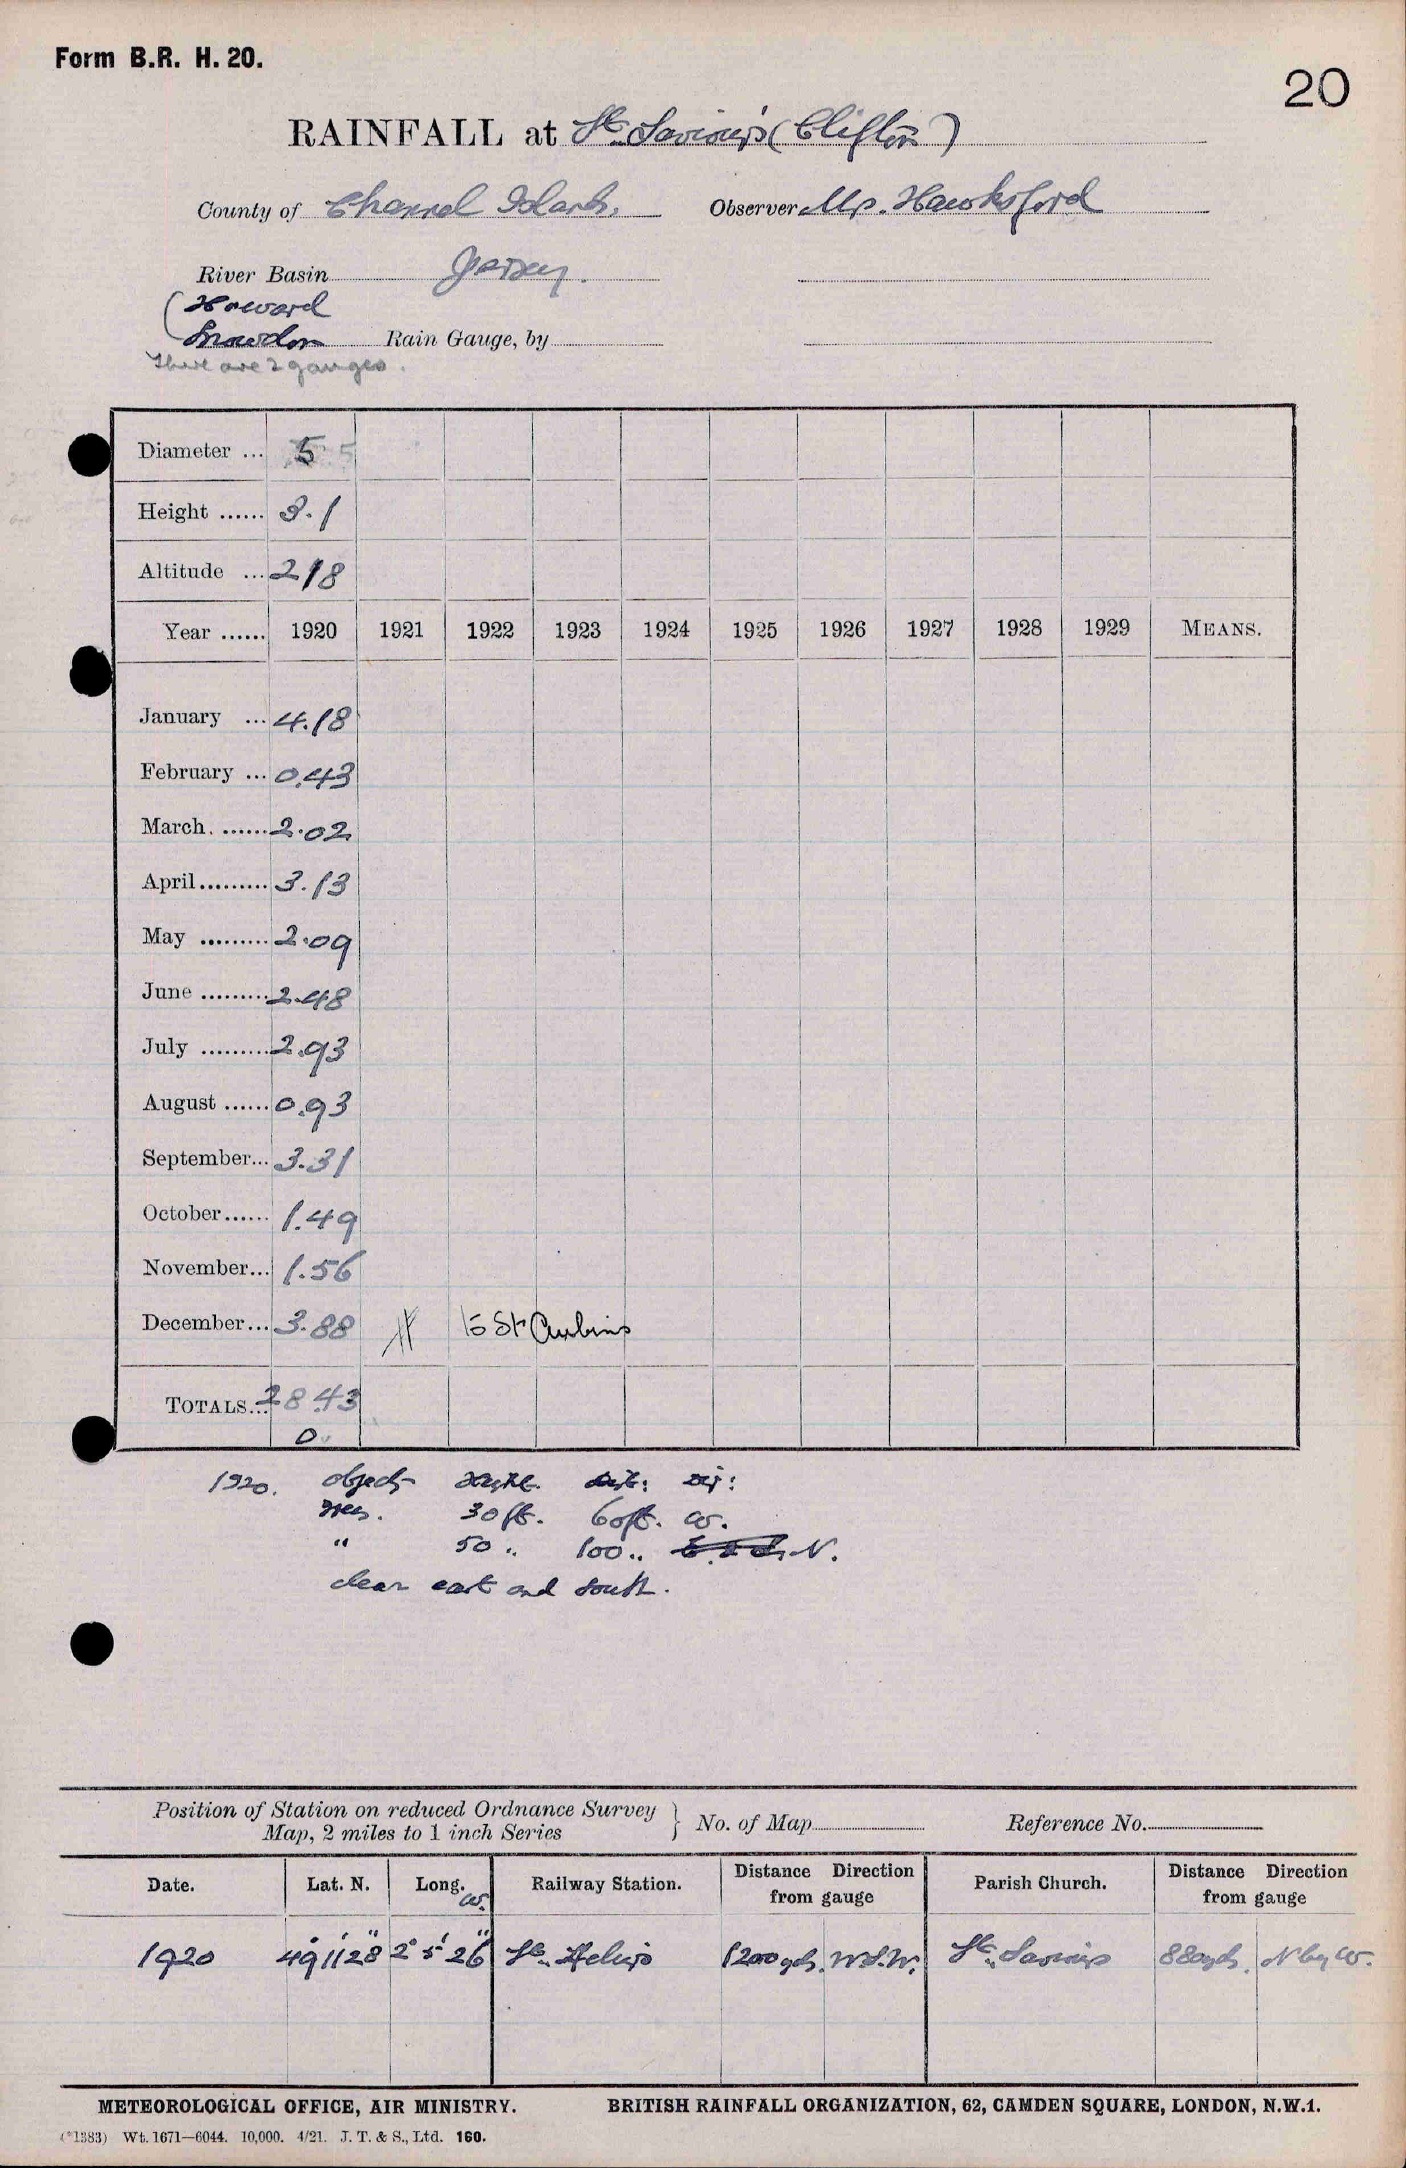 Form B.R. H. 20.
20
RAINFALL at St. Saviour's (Clifton)
County of Channel Islands. Observer Mr. Hawksford
River Basin Jersey.
(Howard
Snowdon Rain Gauge, by
There are 2 gauges.
Diameter ... 5
Height ...... 3.1
Altitude ... 218
Year ...... 1920 1921 1922 1923 1924 1925 1926 1927 1928 1929 MEANS.
January ... 4.18
February ... 0.43
March. ...... 2.02
April ......... 3.13
May ......... 2.09
June ......... 2.48
July ......... 2.93
August ...... 0.93
September... 3.31
October...... 1.49
November... 1.56
December... 3.88 to St Aubins
TOTALS... 28.43
0
1920. object height. dist: dir:
trees. 30 ft. 60 ft. W.
" 50 " 100 " N.
clear east and south.
Position of Station on reduced Ordnance Survey } No. of Map Reference No.
Map, 2 miles to 1 inch Series
Date. Lat. N. Long. W. Railway Station. Distance Direction from gauge Parish Church. Distance Direction from gauge
1920 49° 11' 28" 2° 5' 26" St. Heliers 1200 yds. W.S.W. St. Saviours 880 yds. N by W.
METEOROLOGICAL OFFICE, AIR MINISTRY. BRITISH RAINFALL ORGANIZATION, 62, CAMDEN SQUARE, LONDON, N.W.1.
(*1383) Wt. 1671—6044. 10,000. 4/21. J. T. & S., Ltd. 160.